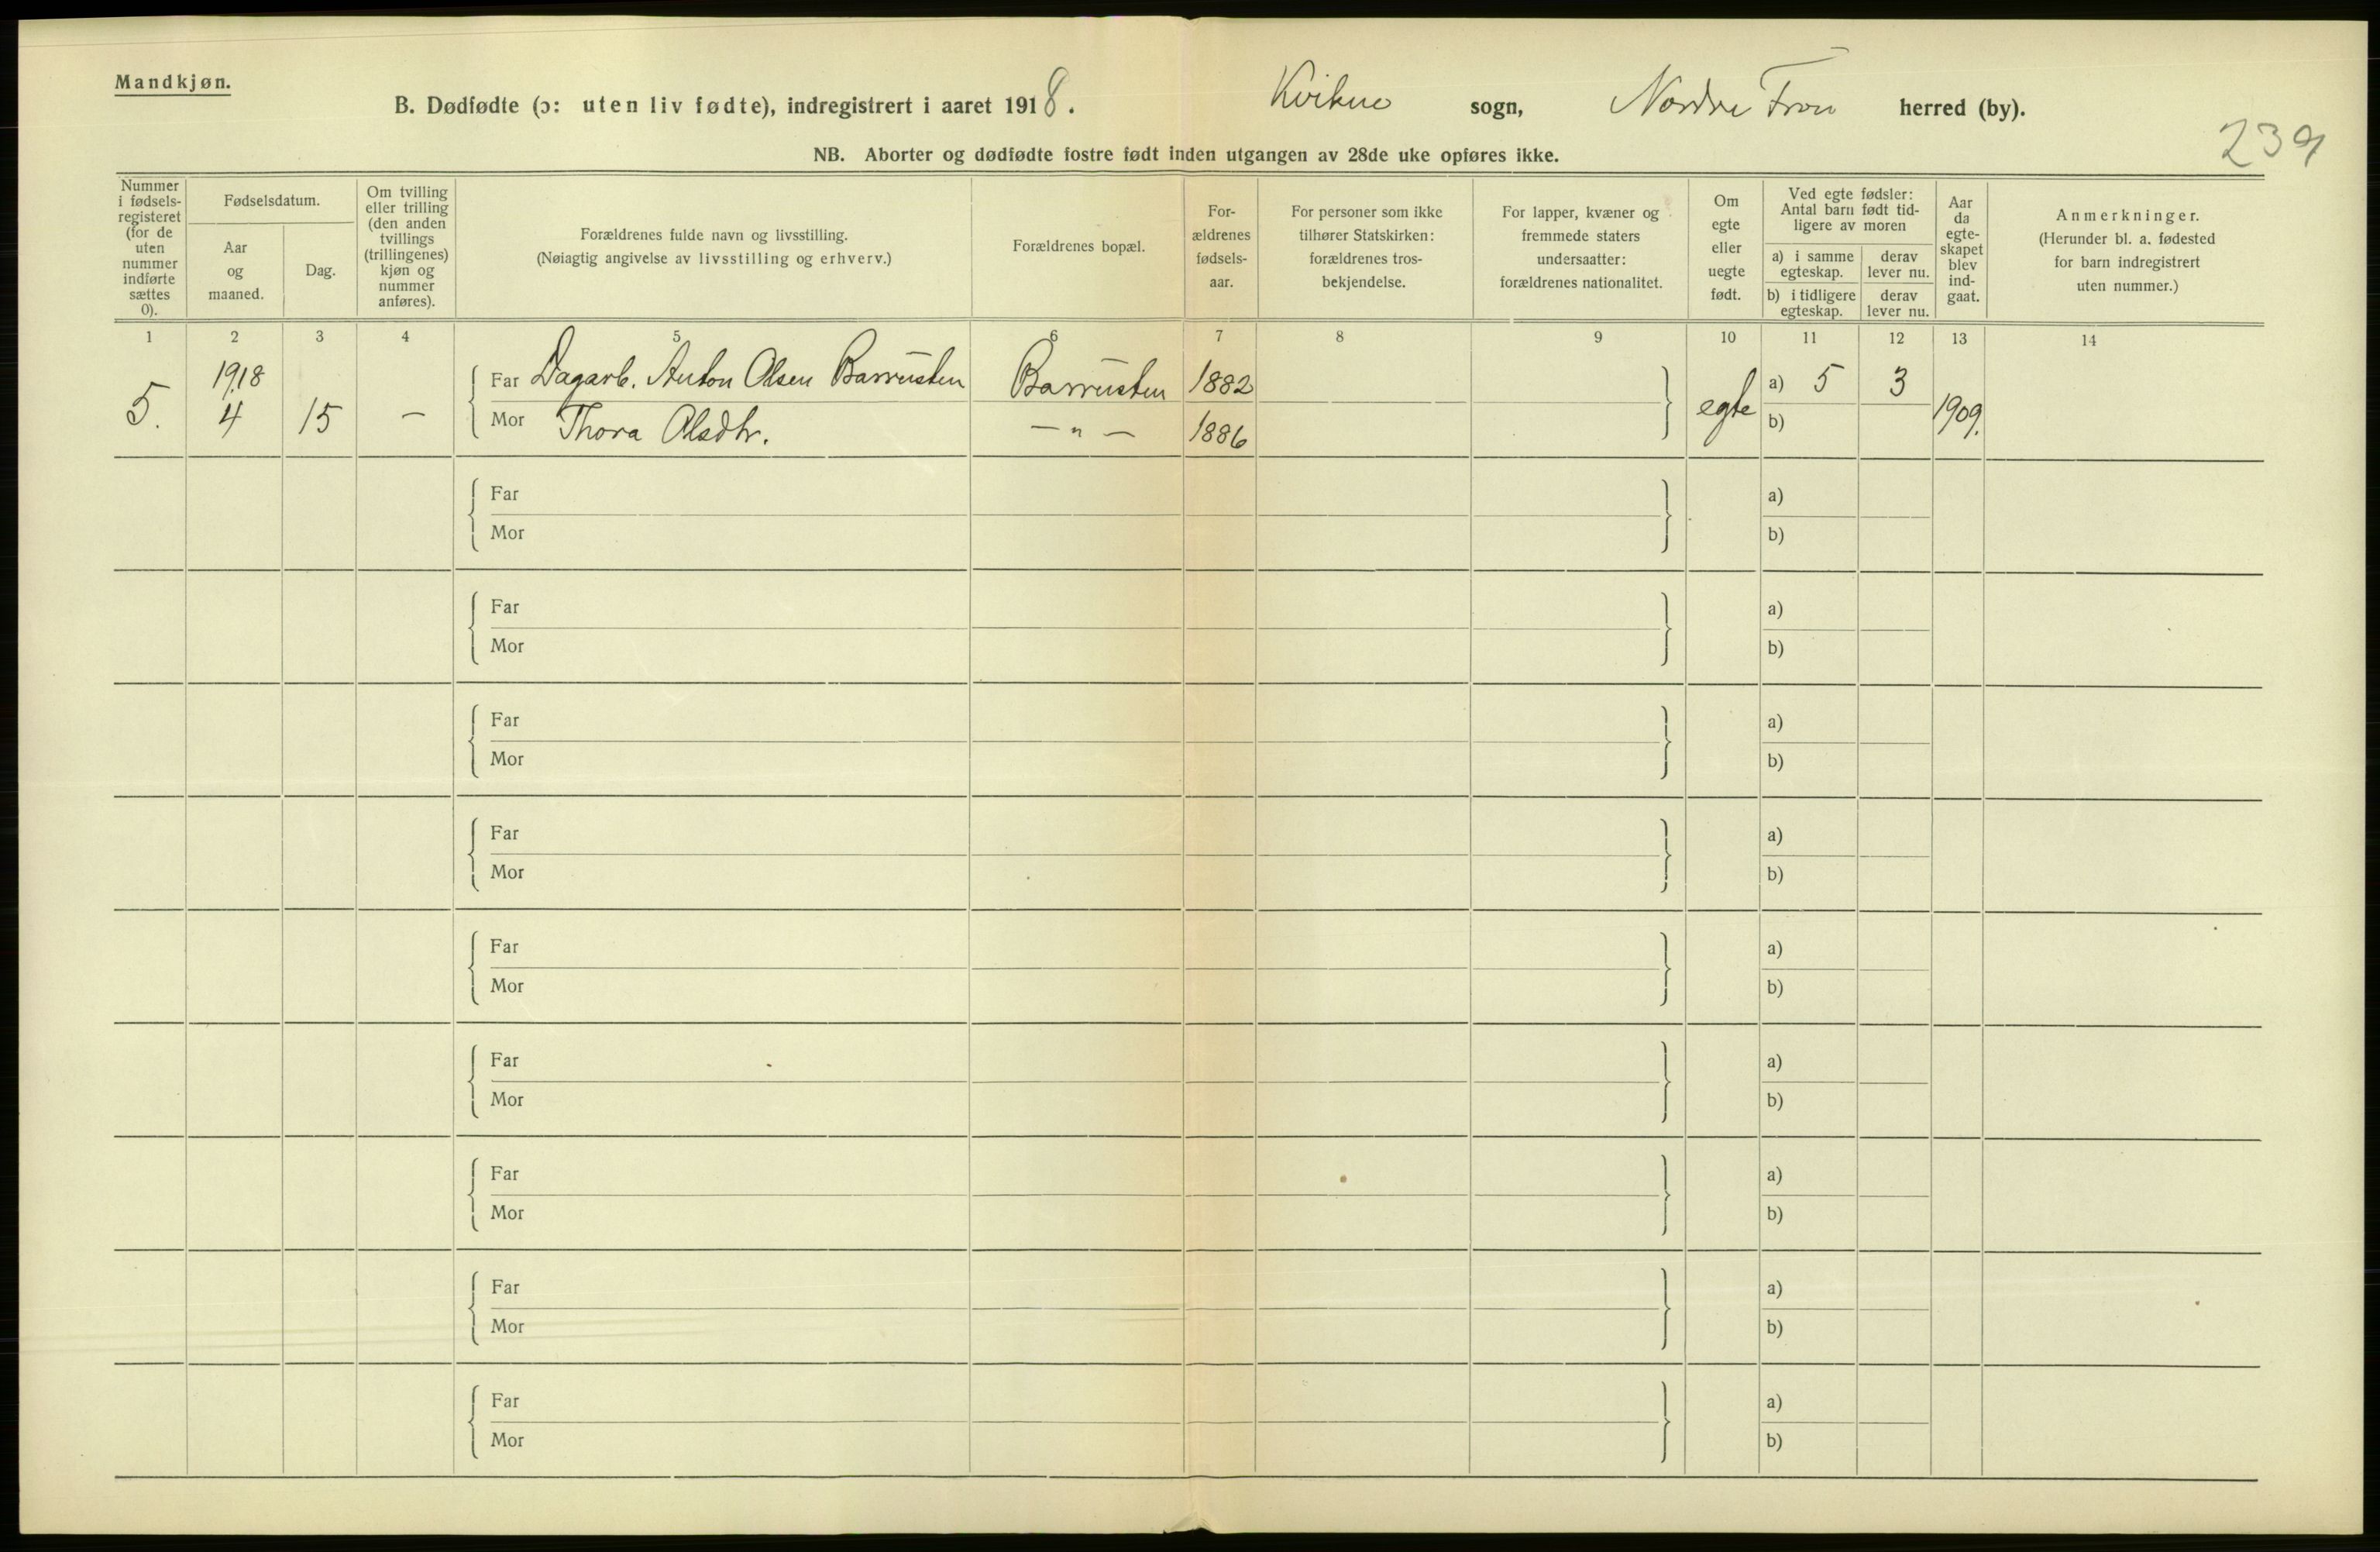 Mandkjøn.
B. Dødfødte (ɔ: uten liv fødte), indregistrert i aaret 1918. Kvikne sogn, Nordre Fron herred (by).
239
NB. Aborter og dødfødte fostre født inden utgangen av 28de uke opføres ikke.
Nummer
i fødsels-
registeret
(for de
uten
nummer
indførte
sættes
0).
Fødselsdatum.
Aar
og
maaned.
Dag.
Om tvilling
eller trilling
(den anden
tvillings
(trillingenes)
kjøn og
nummer
anføres).
Forældrenes fulde navn og livsstilling.
(Nøiagtig angivelse av livsstilling og erhverv.)
Forældrenes bopæl.
For-
ældrenes
fødsels-
aar.
For personer som ikke
tilhører Statskirken:
forældrenes tros-
bekjendelse.
For lapper, kvæner og
fremmede staters
undersaatter:
forældrenes nationalitet.
Om
egte
eller
uegte
født.
Ved egte fødsler:
Antal barn født tid-
ligere av moren
a) i samme
egteskap.
derav
lever nu.
b) i tidligere
egteskap.
derav
lever nu.
Aar
da
egte-
skapet
blev
ind-
gaat.
Anmerkninger.
(Herunder bl. a. fødested
for barn indregistrert
uten nummer.)
1 2 3 4 5 6 7 8 9 10 11 12 13 14
5. 1918 4 15 – Far Dagarb. Anton Olsen Barrusten Barrusten 1882 egte a) 5 3 1909.
Mor Thora Olsdtr. – " – 1886 b)
Far a)
Mor b)
Far a)
Mor b)
Far a)
Mor b)
Far a)
Mor b)
Far a)
Mor b)
Far a)
Mor b)
Far a)
Mor b)
Far a)
Mor b)
Far a)
Mor b)